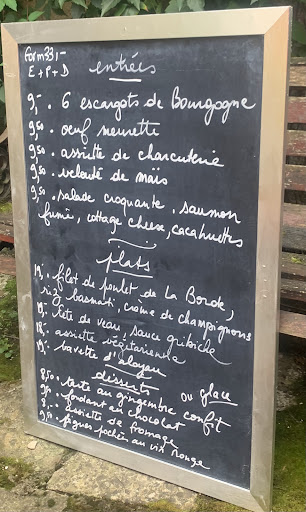 Form 33,-
E + P + D
entrées
9,- . 6 escargots de Bourgogne
9,50 . oeuf meurette
9,50 . assiette de charcuterie
9,50 . velouté de maïs
9,50 . salade croquante, saumon
fumé, cottage cheese, cacahuettes
plats
19,- . filet de poulet de La Borde,
riz basmati, crème de champignons
19,- . tête de veau, sauce gribiche
18,- . assiette végétarienne
19,- . bavette d'aloyau
desserts ou glace
8,50 . tarte au gingembre confit
9,- . fondant au chocolat
8,- . assiette de fromage
9,50 . figues pochées au vin rouge